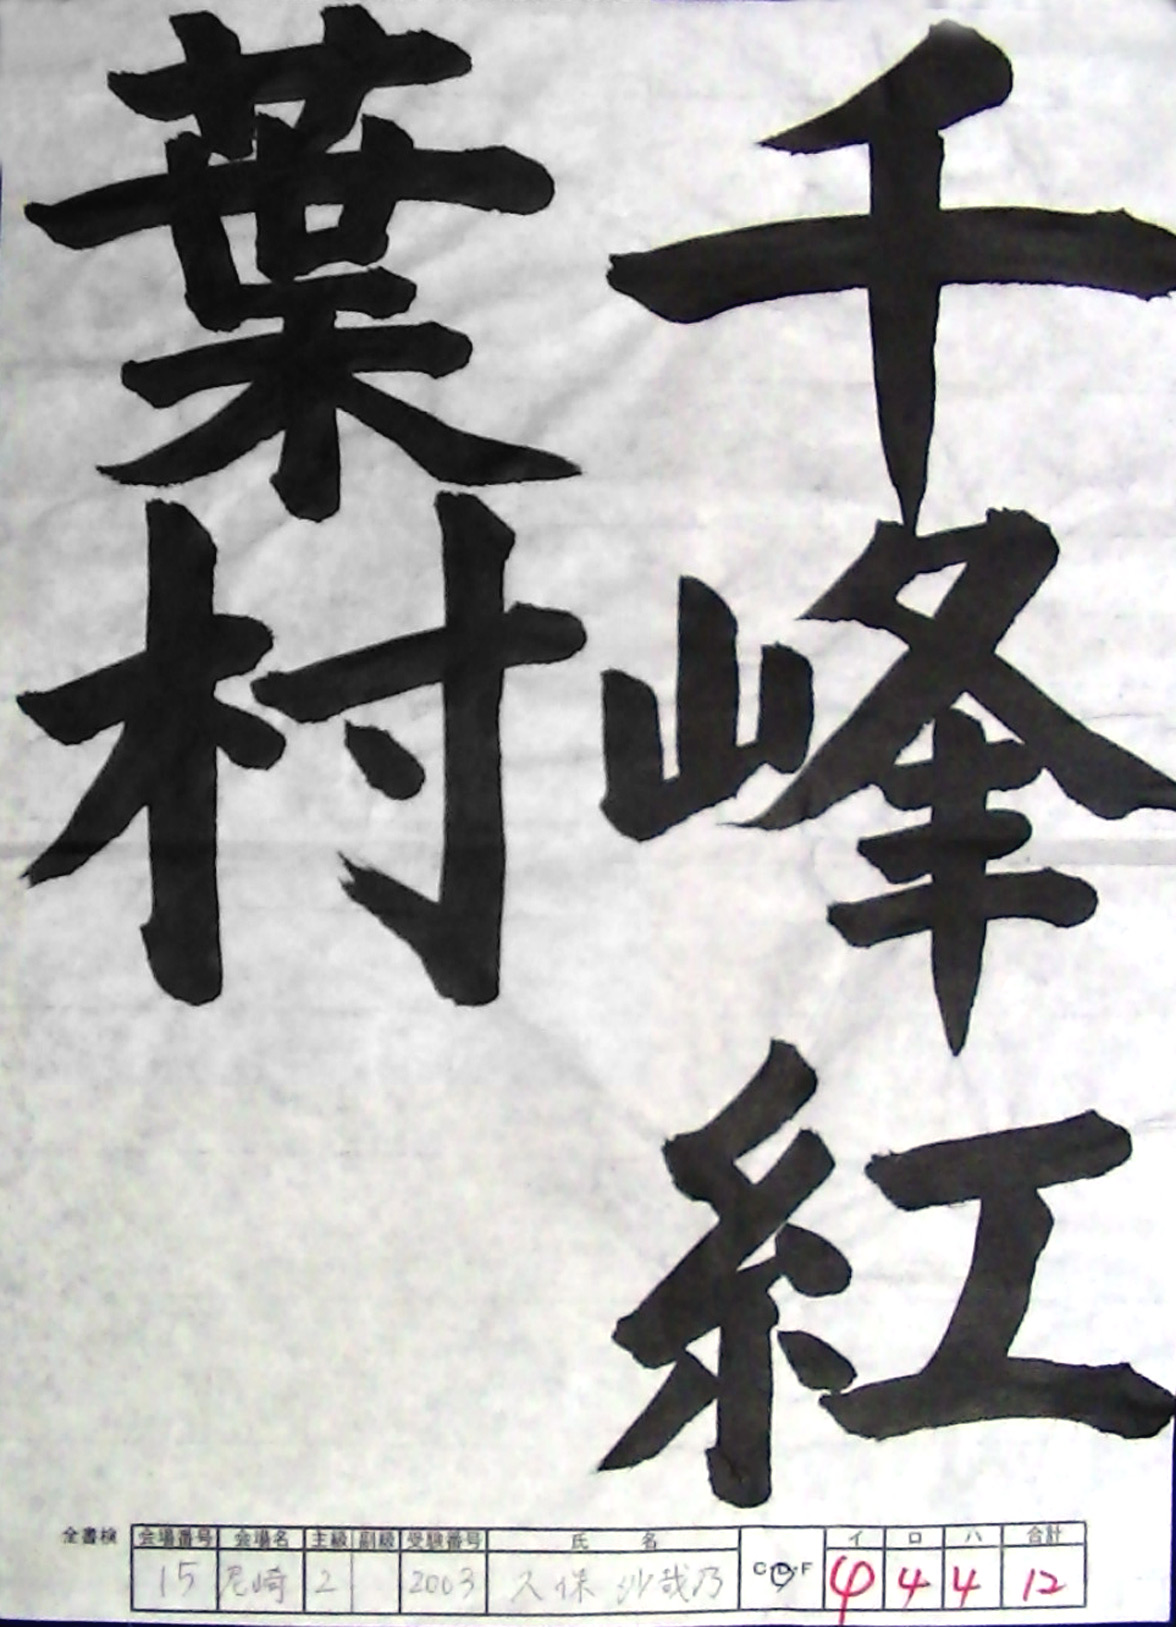 千峰紅
葉村
全書検
会場番号 会場名 主級 副級 受験番号 氏名 イ ロ ハ 合計
15 尼崎 2 2003 久保 沙哉乃 C・D・F 4 4 4 12